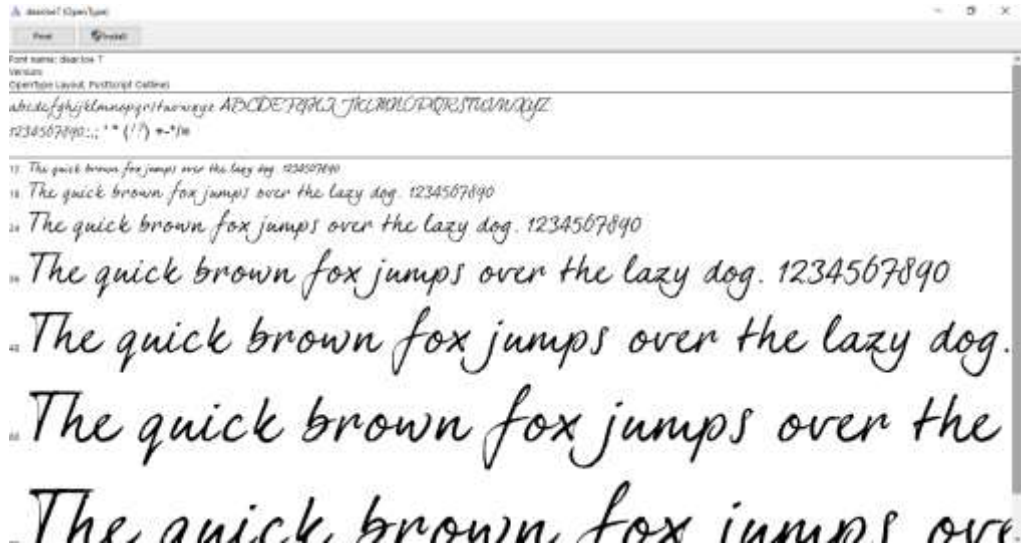 (OpenType)
Print Install
Font name:
Version:
OpenType Layout, PostScript Outlines
abcdefghijklmnopqrstuvwxyz ABCDEFGHIJKLMNOPQRSTUVWXYZ
1234567890.:,; ' " (!?) +-*/=
12 The quick brown fox jumps over the lazy dog. 1234567890
18 The quick brown fox jumps over the lazy dog. 1234567890
24 The quick brown fox jumps over the lazy dog. 1234567890
36 The quick brown fox jumps over the lazy dog. 1234567890
48 The quick brown fox jumps over the lazy dog.
60 The quick brown fox jumps over the
The quick brown fox jumps ove